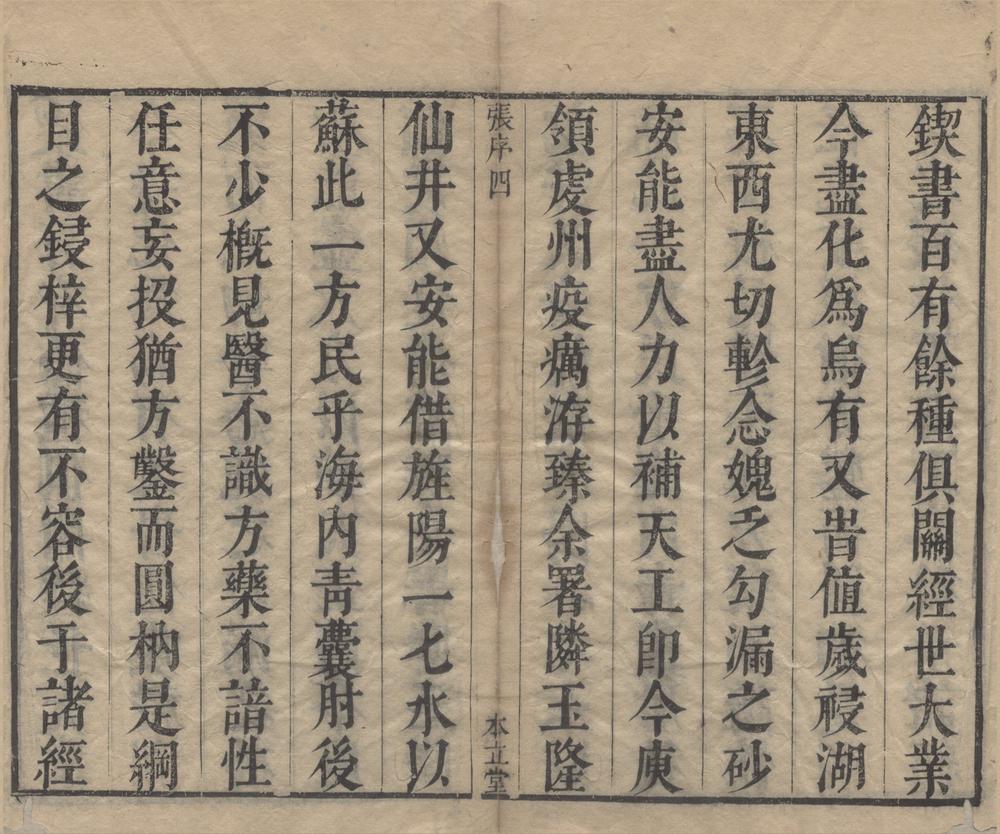 鍥書百有餘種俱關經世大業
今盡化爲烏有又旹值歲祲湖
東西尤切軫念媿乏勾漏之砂
安能盡人力以補天工卽今庾
領虔州疫癘洊臻余署隣玉隆
張序四
本立堂
仙井又安能借旌陽一七水以
蘇此一方民乎海內靑囊肘後
不少槪見醫不識方藥不諳性
任意妄投猶方鑿而圓枘是綱
目之鋟梓更有不容後于諸經